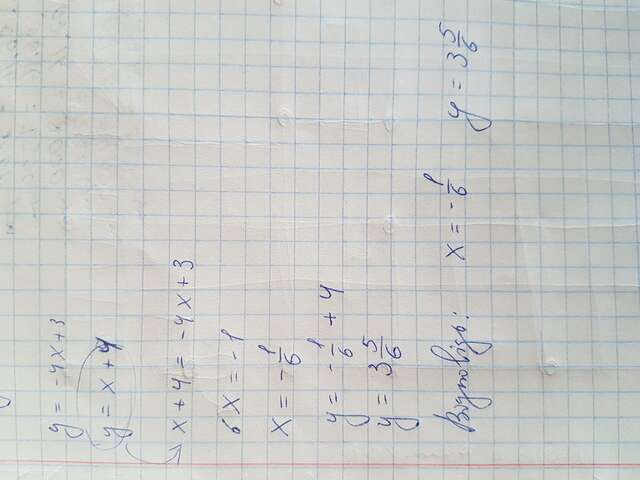 y = -4x+3
y = x+4
x+4 = -4x+3
6x = -1
x = -1/6
y = -1/6 + 4
y = 3 5/6
Відповідь: x = -1/6 y = 3 5/6